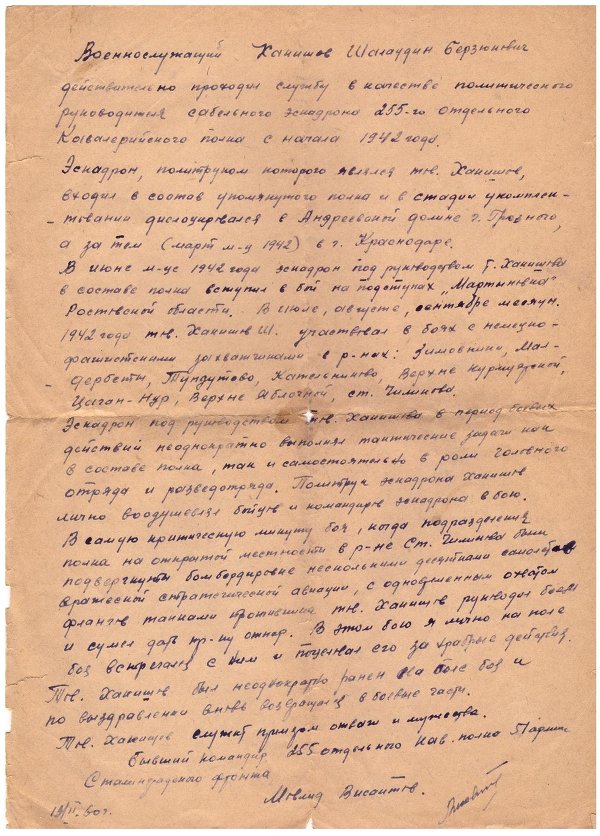 Военнослужащий Ханишов Шагаудин Берзюкович
действительно проходил службу в качестве политического
руководителя сабельного эскадрона 255-го отдельного
Кавалерийского полка с начала 1942 года.
Эскадрон, политруком которого являлся тов. Ханишов,
входил в состав упомянутого полка и в стадии укомплек-
-товании дислоцировался в Андреевской долине г. Грозного,
а затем (март м-ц 1942) в г. Краснодаре.
В июне м-це 1942 года эскадрон под руководством т. Ханишова
в составе полка вступил в бой на подступах „Мартыновка"
Ростовской области. В июле, августе, сентябре месяцы
1942 года тов. Ханишов Ш. участвовал в боях с немецко-
фашистскими захватчиками в р-нах: Зимовники, Мал-
- дербеты, Тундутово, Котельниково, Верхне Курмоярской,
Цаган-Нур, Верхне Яблочной, ст. Чиликово.
Эскадрон под руководством тов. Ханишова в период боевых
действий неоднократно выполнял тактические задачи как
в составе полка, так и самостоятельно в роли головного
отряда и разведотряда. Политрук эскадрона Ханишов
лично воодушевлял бойцов и командиров эскадрона в бою.
В самую критическую минуту боя, когда подразделения
полка на открытой местности в р-не ст. Чиликова были
подвергнуты бомбардировке несколькими десятками самолётов
вражеской стратегической авиации, с одновременным охватом
флангов танками противника тов. Ханишов руководил боем
и сумел дать пр-ку отпор. В этом бою я лично на поле
боя встречался с ним и поцеловал его за храбрые действия.
Тов. Ханишов был неоднократно ранен на поле боя и
по выздравлении вновь возвращался в боевые части.
Тов. Ханишов служит примером отваги и мужества.
Бывший командир 255 отдельного Кав. полка 51 армии
Сталинградского фронта
Мовлид Висаитов.
13/II 60 г.